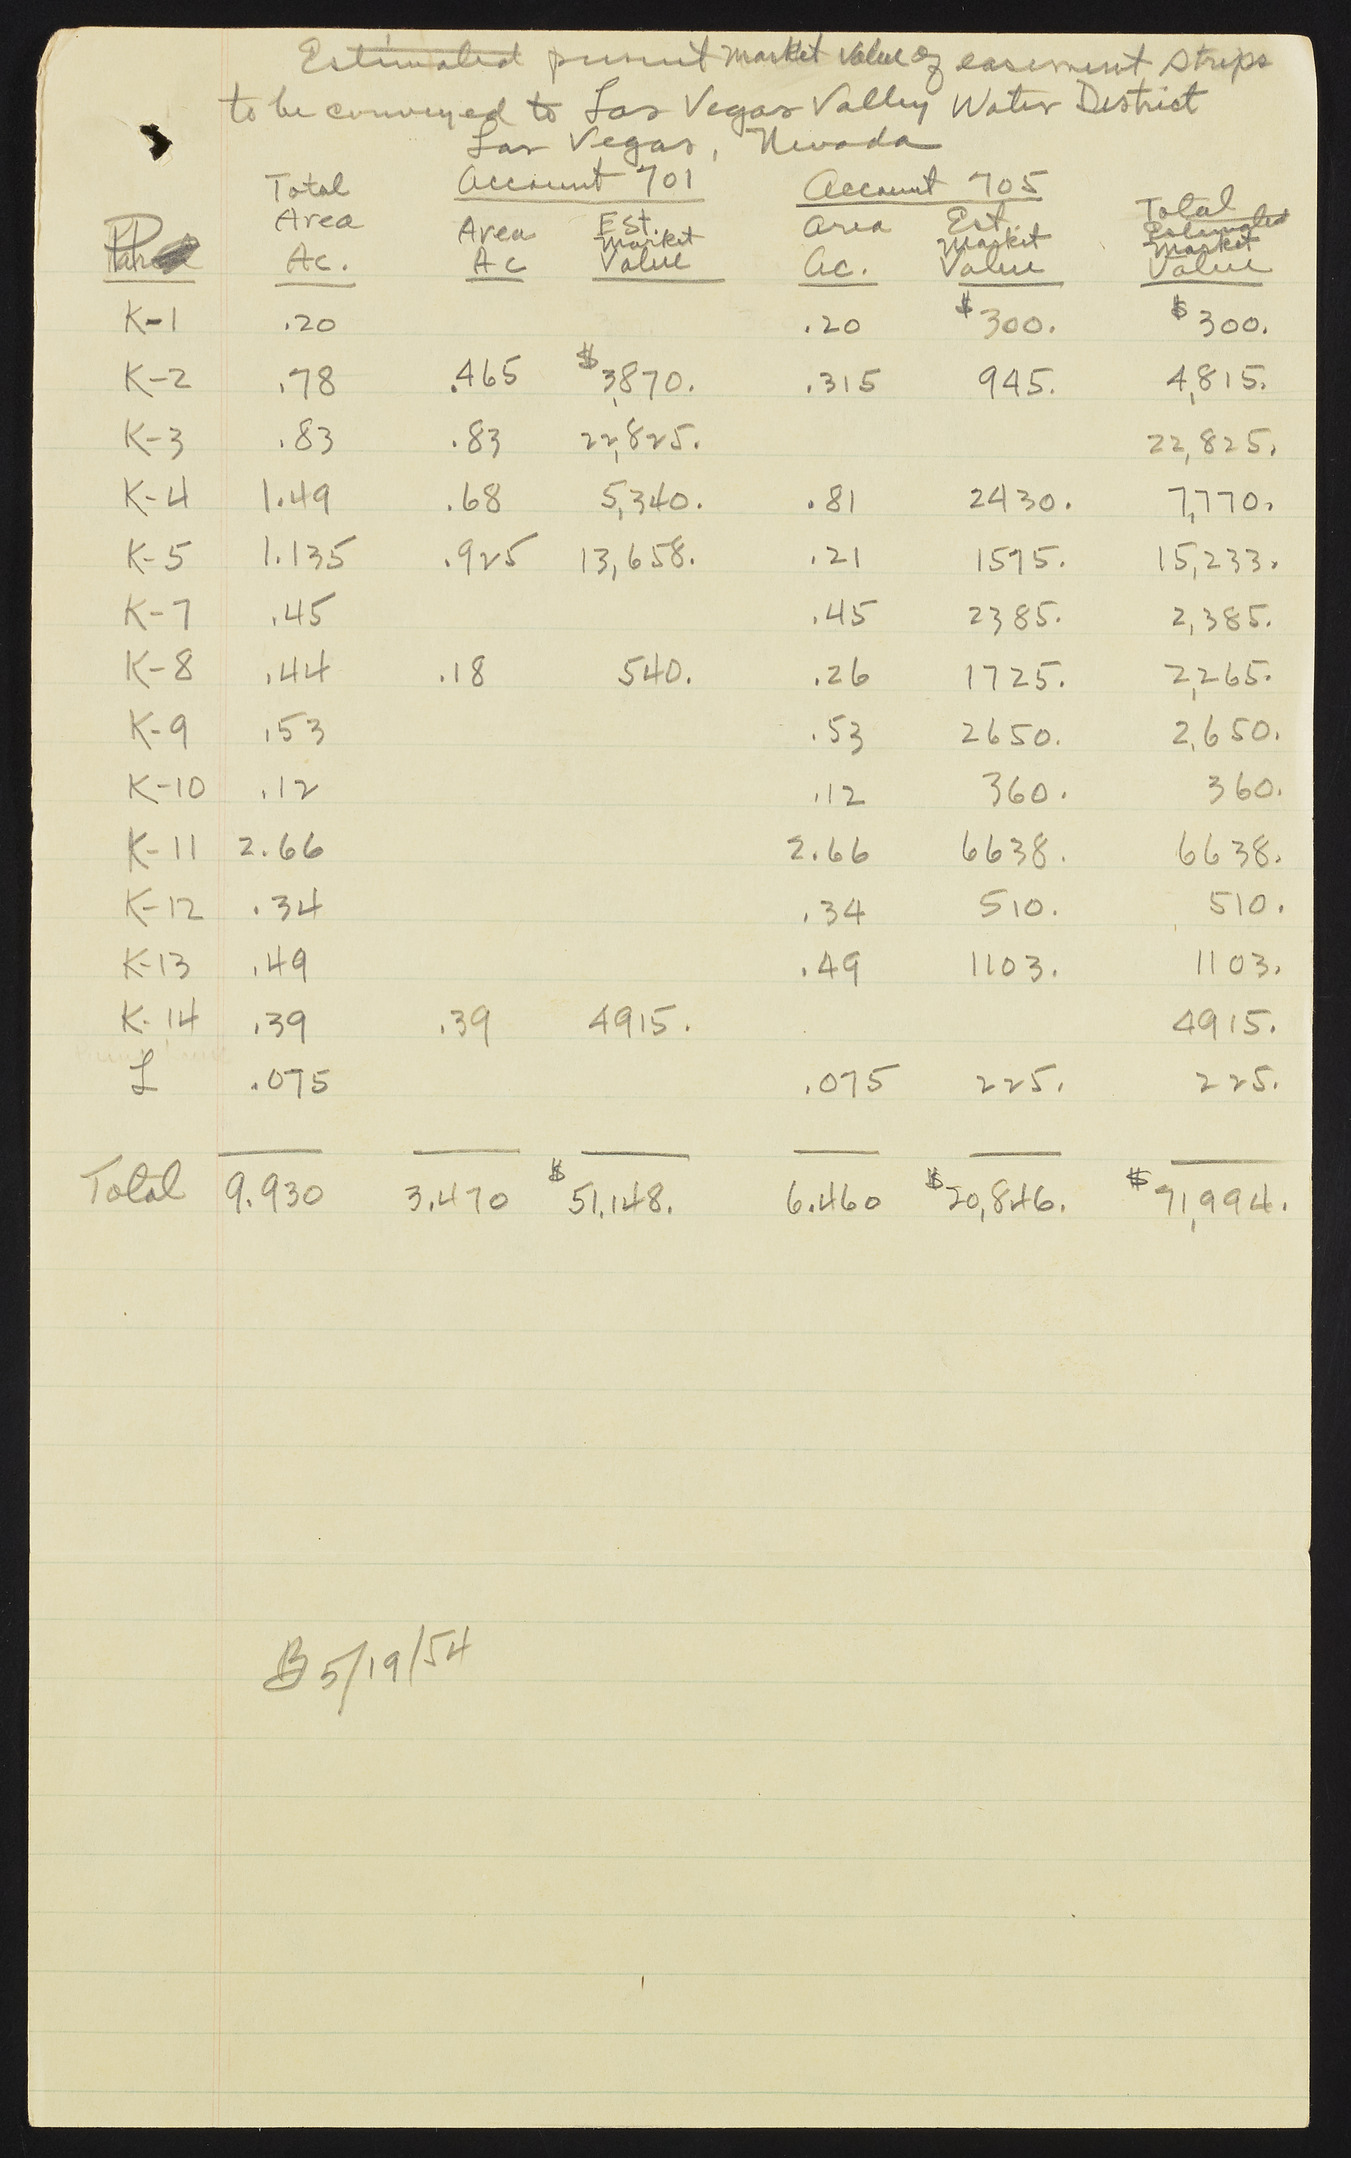 Estimated present market value of easement strips
to be conveyed to Las Vegas Valley Water District
Las Vegas, Nevada
Total Account 701 Account 705 Total
Area Area Est. Area Est. Estimated
Market Market Market
Parcel Ac. Ac Value Ac. Value Value
K-1 .20 .20 $300. $300.
K-2 .78 .465 $3,870. .315 945. 4,815.
K-3 .83 .83 22,825. 22,825.
K-4 1.49 .68 5,340. .81 2430. 7,770.
K-5 1.135 .925 13,658. .21 1575. 15,233.
K-7 .45 .45 2385. 2,385.
K-8 .44 .18 540. .26 1725. 2,265.
K-9 .53 .53 2650. 2,650.
K-10 .12 .12 360. 360.
K-11 2.66 2.66 6638. 6638.
K-12 .34 .34 510. 510.
K-13 .49 .49 1103. 1103.
K-14 .39 .39 4915. 4915.
L .075 .075 225. 225.
Total 9.930 3.470 $51,148. 6.460 $20,846. $71,994.
B 5/19/54